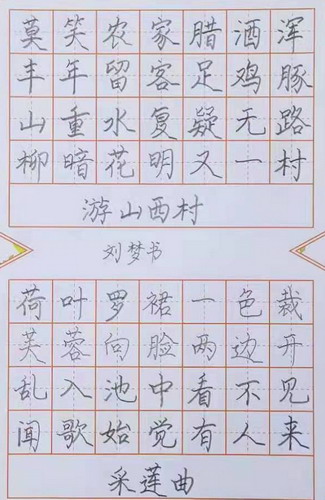 莫笑农家腊酒浑
丰年留客足鸡豚
山重水复疑无路
柳暗花明又一村
游山西村
刘梦书
荷叶罗裙一色裁
芙蓉向脸两边开
乱入池中看不见
闻歌始觉有人来
采莲曲